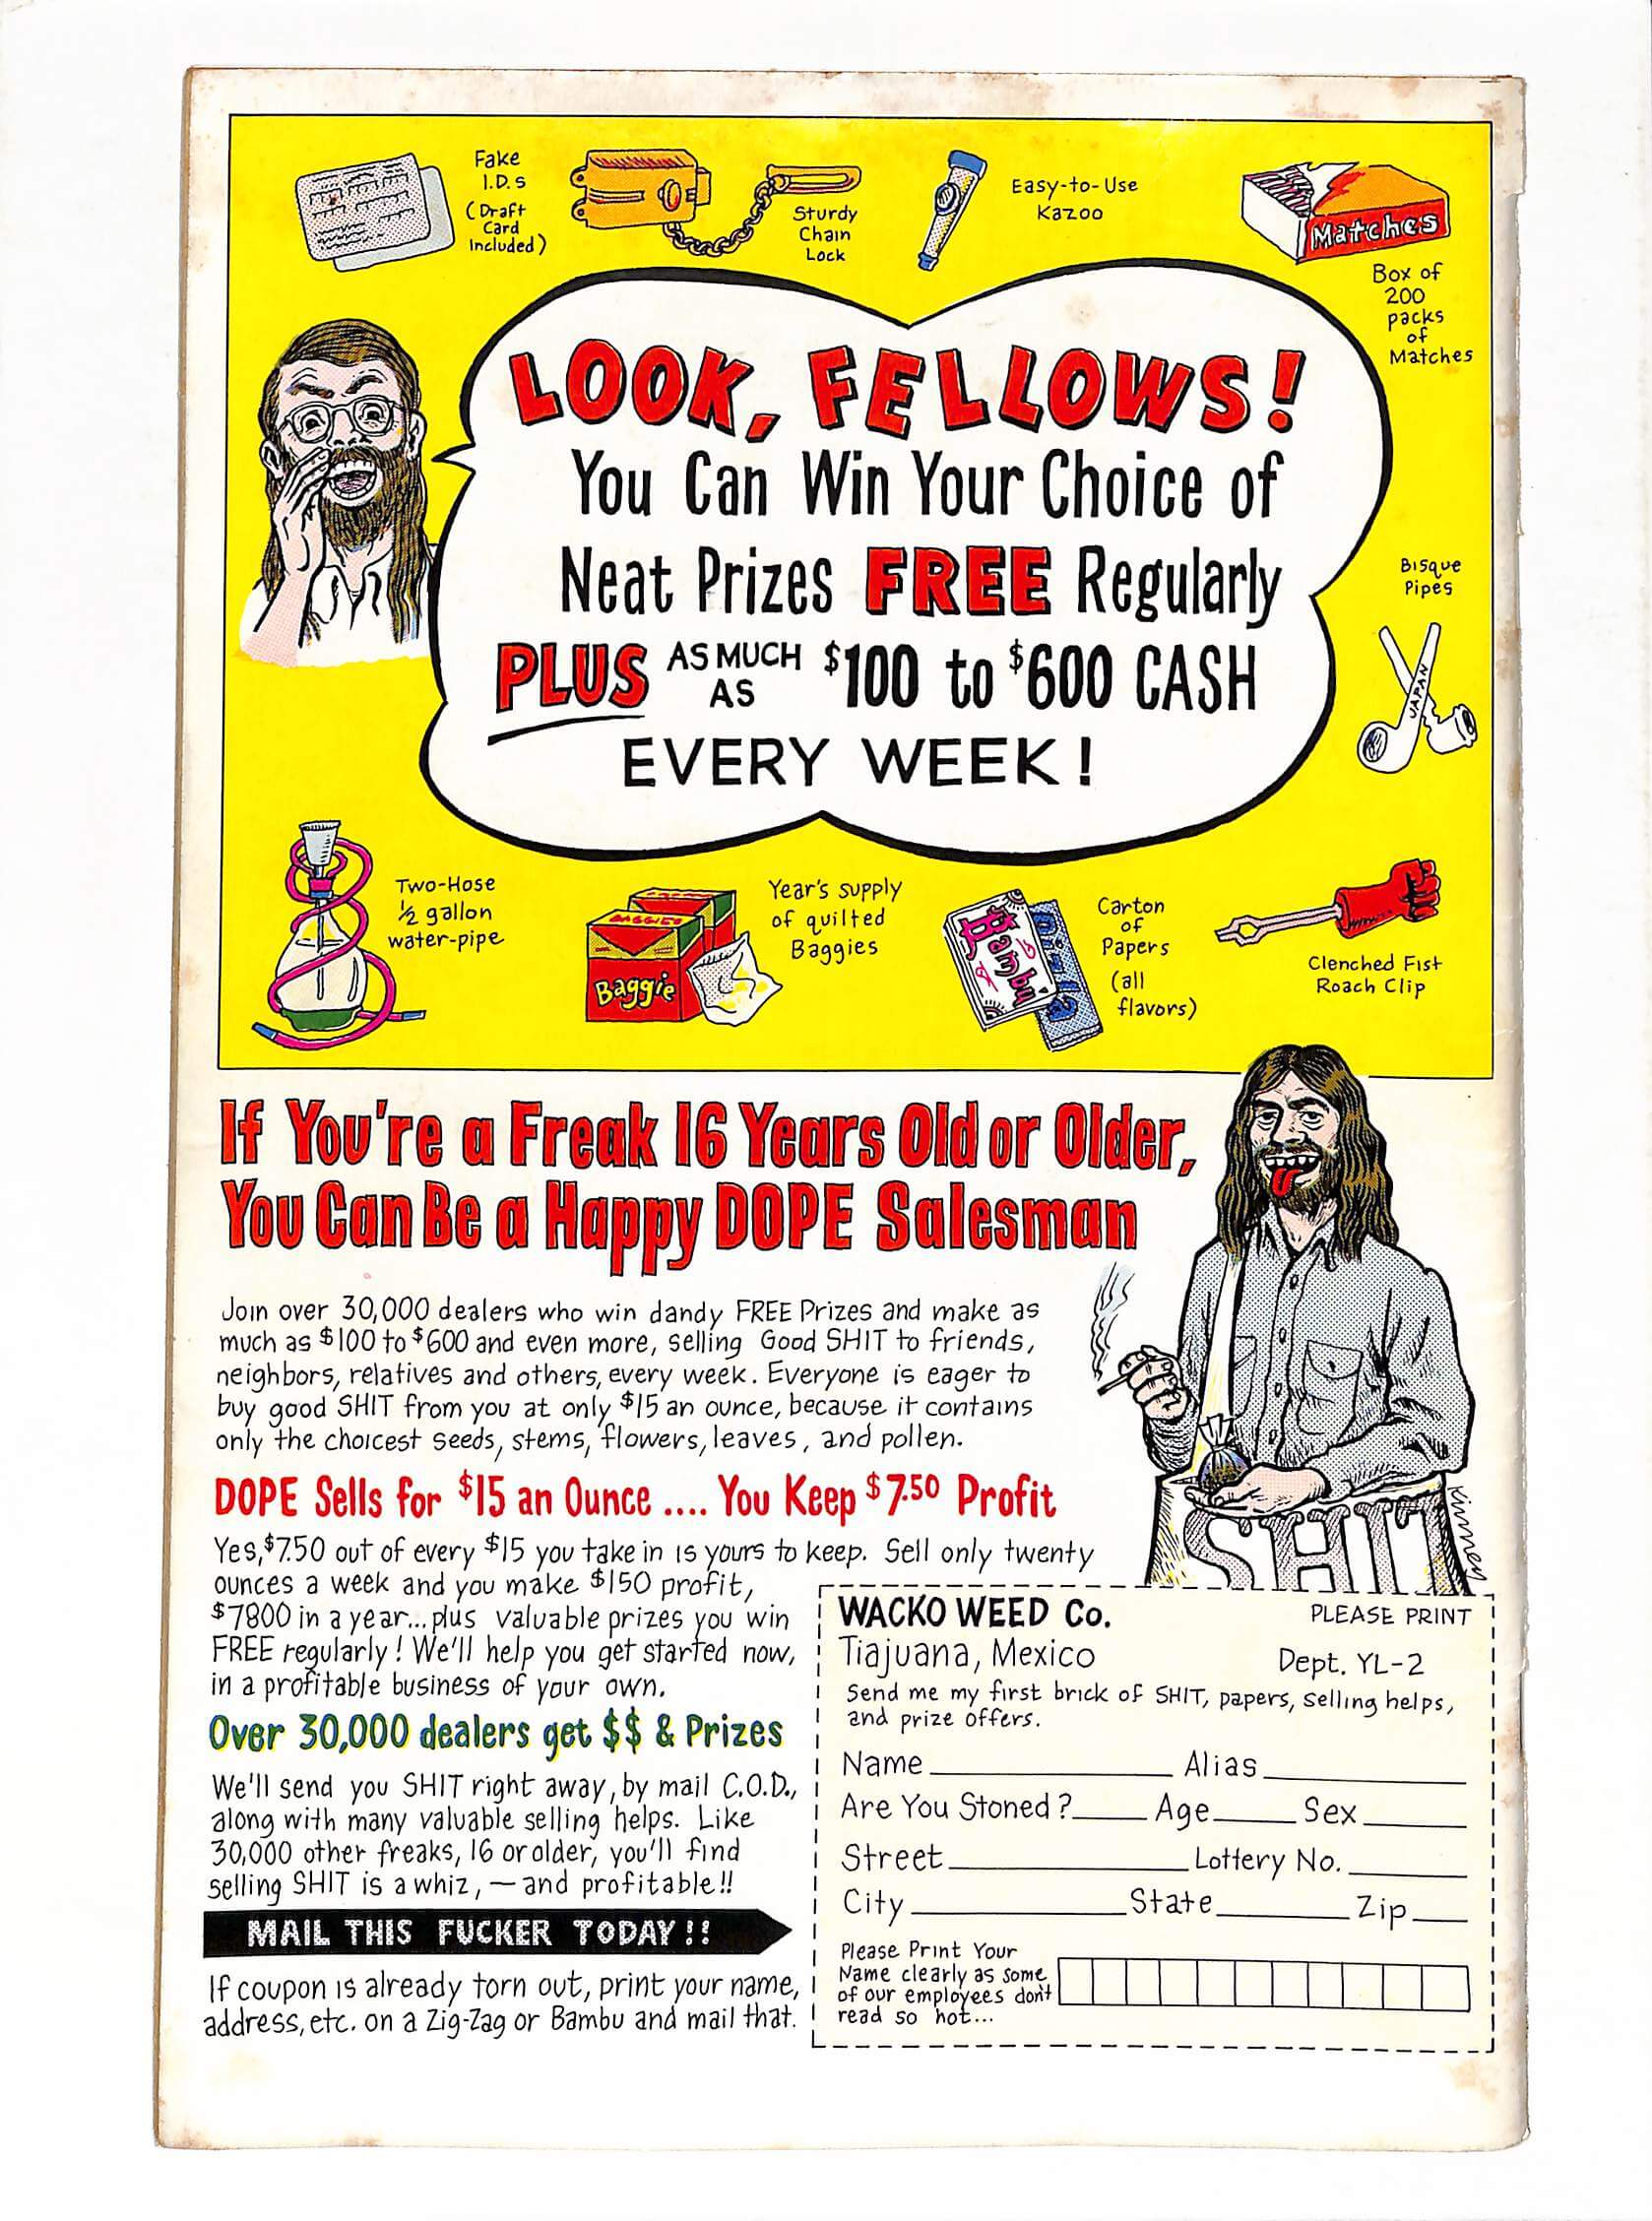 Fake
I.D.s
(Draft
Card
Included)
Sturdy
Chain
Lock
Easy-to-Use
Kazoo
Matches
Box of
200
packs
of
Matches
LOOK, FELLOWS!
You Can Win Your Choice of
Neat Prizes FREE Regularly
PLUS AS MUCH AS $100 to $600 CASH
EVERY WEEK!
Bisque
Pipes
JAPAN
Two-Hose
½ gallon
water-pipe
BAGGIES
Baggie
Year's supply
of quilted
Baggies
Bambu
Carton
of
Papers
(all
flavors)
Clenched Fist
Roach Clip
If You're a Freak 16 Years Old or Older,
You Can Be a Happy DOPE Salesman
Join over 30,000 dealers who win dandy FREE Prizes and make as
much as $100 to $600 and even more, selling Good SHIT to friends,
neighbors, relatives and others, every week. Everyone is eager to
buy good SHIT from you at only $15 an ounce, because it contains
only the choicest seeds, stems, flowers, leaves, and pollen.
DOPE Sells for $15 an Ounce .... You Keep $7.50 Profit
SHIT
Kinney
Yes, $7.50 out of every $15 you take in is yours to keep. Sell only twenty
ounces a week and you make $150 profit,
$7800 in a year... plus valuable prizes you win
FREE regularly! We'll help you get started now,
in a profitable business of your own.
Over 30,000 dealers get $$ & Prizes
We'll send you SHIT right away, by mail C.O.D.,
along with many valuable selling helps. Like
30,000 other freaks, 16 or older, you'll find
selling SHIT is a whiz, — and profitable!!
MAIL THIS FUCKER TODAY!!
If coupon is already torn out, print your name,
address, etc. on a Zig-Zag or Bambu and mail that.
WACKO WEED Co. PLEASE PRINT
Tiajuana, Mexico Dept. YL-2
Send me my first brick of SHIT, papers, selling helps,
and prize offers.
Name Alias
Are You Stoned? Age Sex
Street Lottery No.
City State Zip
Please Print Your
Name clearly as some
of our employees don't
read so hot...